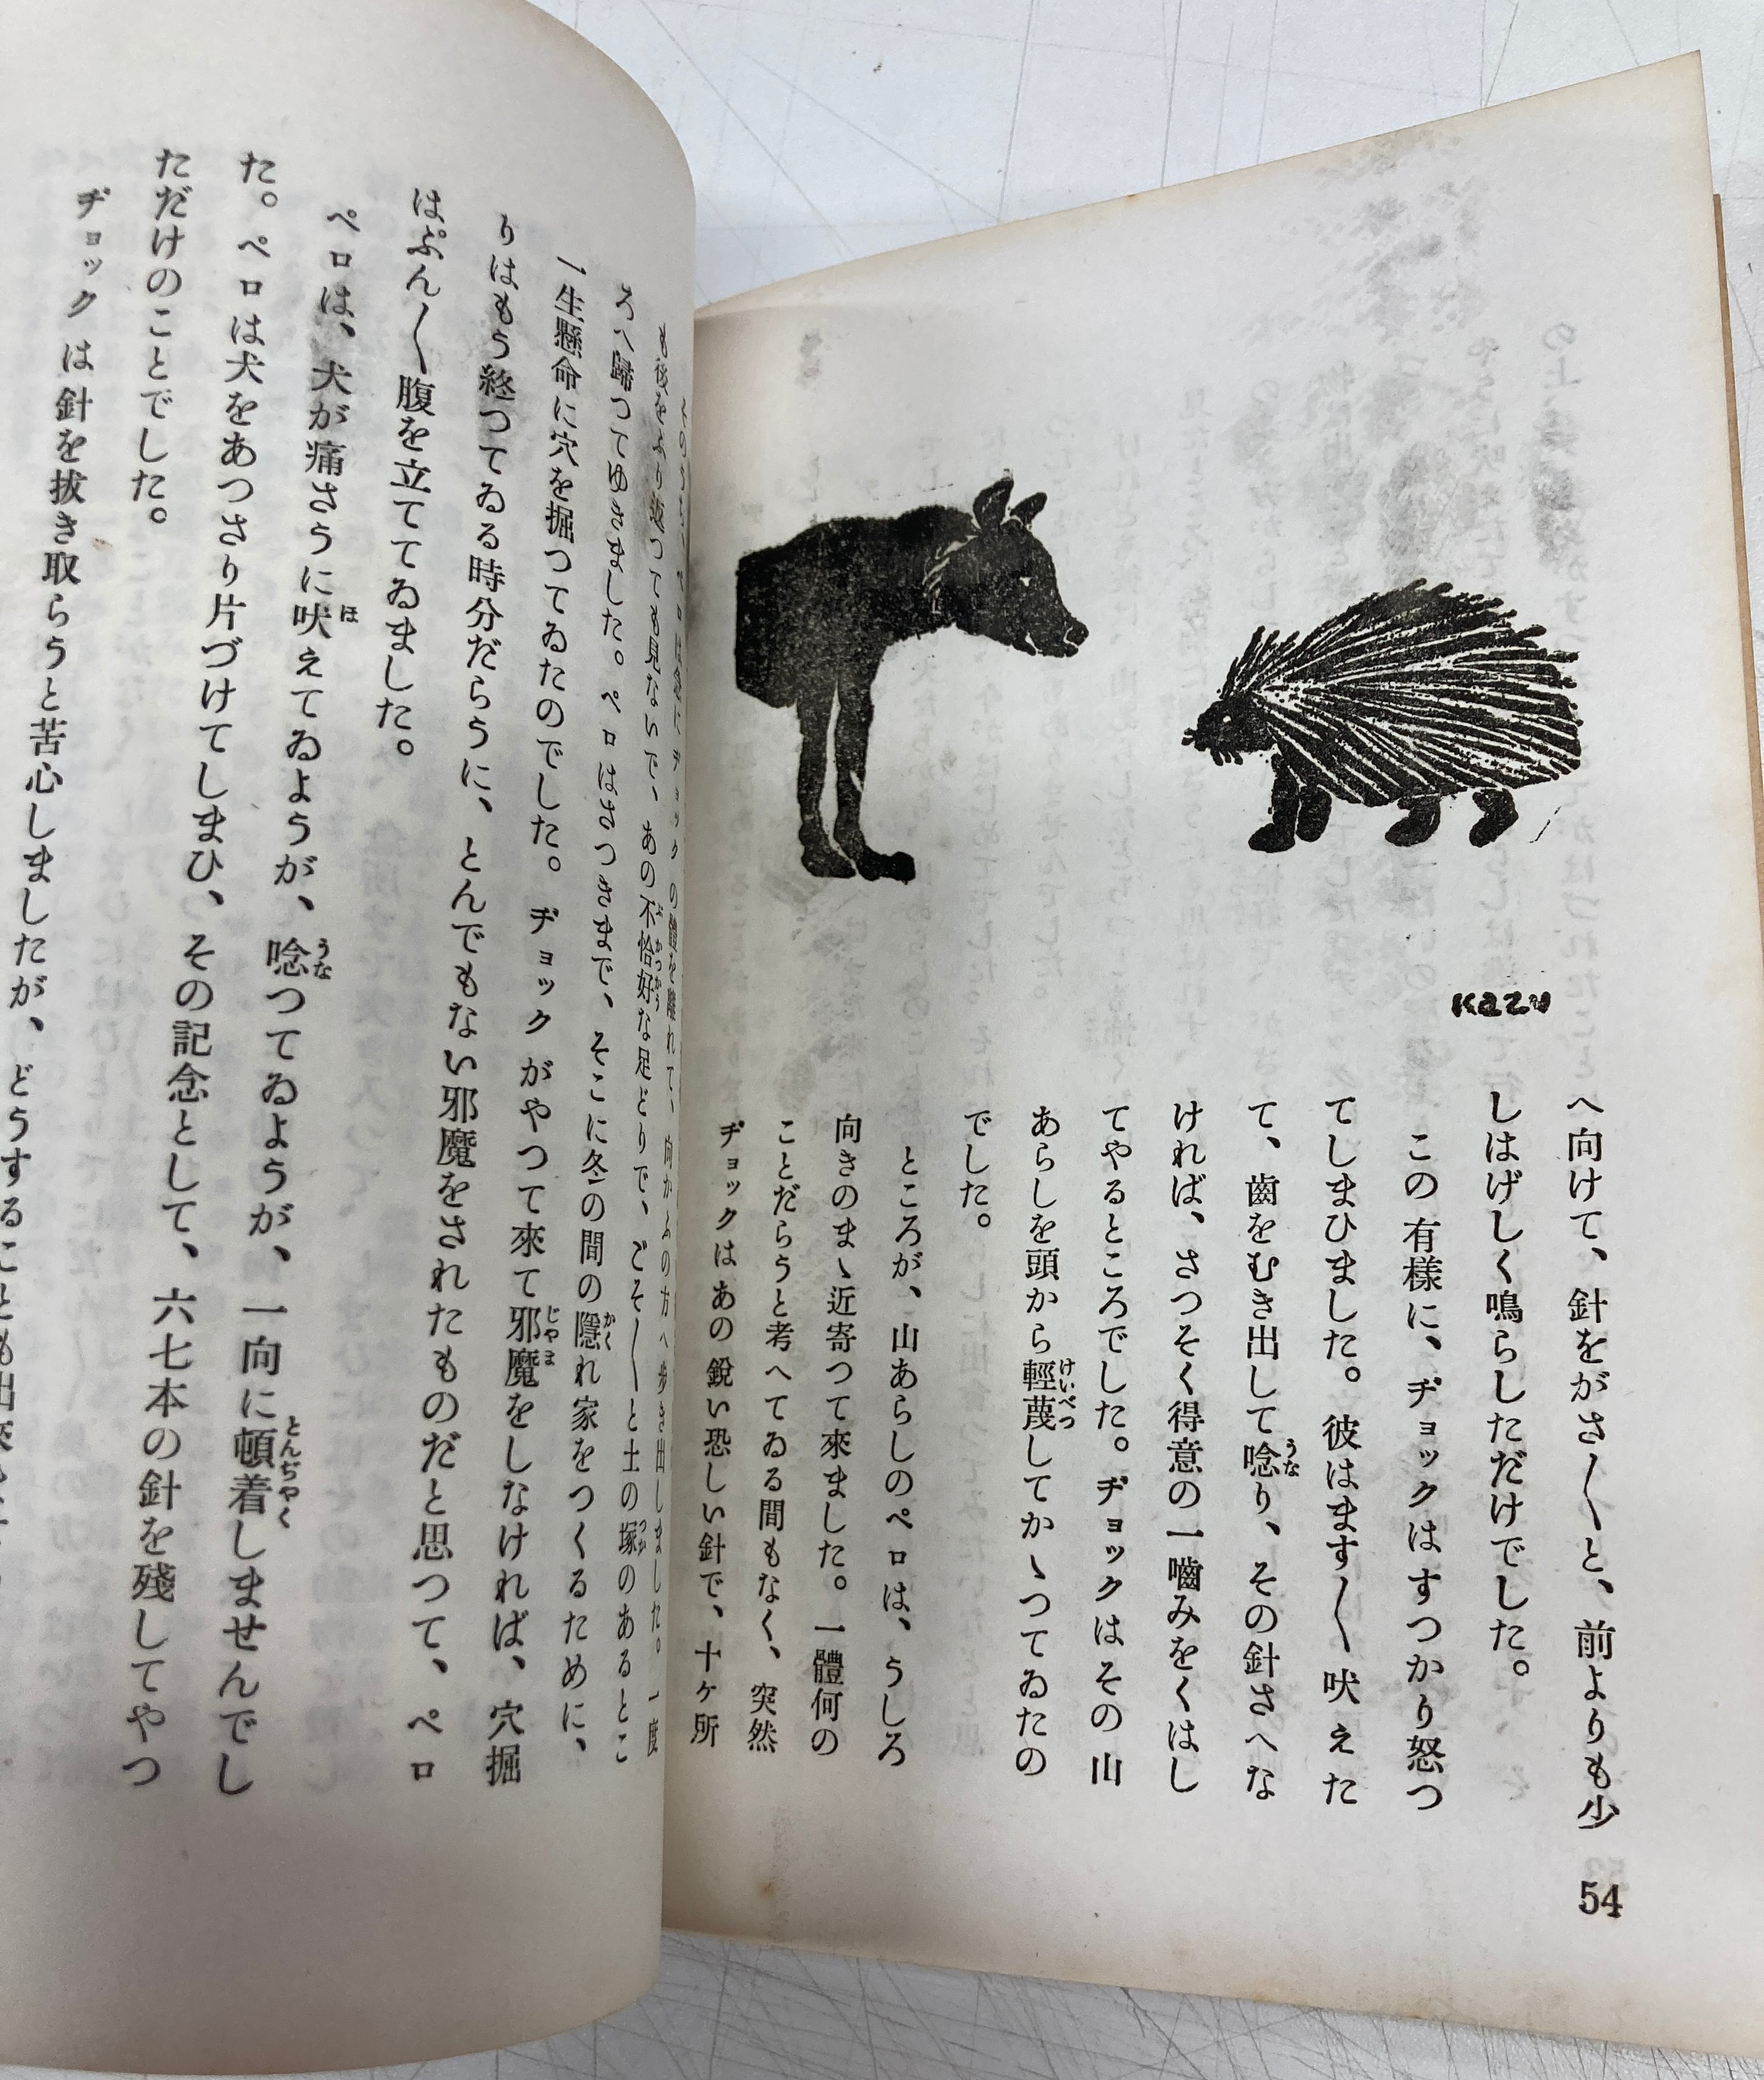 Kazu
へ向けて、針をがさ〳〵と、前よりも少
しはげしく鳴らしただけでした。
この有樣に、ヂョックはすつかり怒つ
てしまひました。彼はます〳〵吠えた
て、齒をむき出して唸り、その針さへな
うな
ければ、さつそく得意の一嚙みをくはし
てやるところでした。ヂョックはその山
あらしを頭から輕蔑してかゝつてゐたの
けいべつ
でした。
ところが、山あらしのペロは、うしろ
向きのまゝ近寄つて來ました。一體何の
ことだらうと考へてゐる間もなく、突然
ヂョックはあの銳い恐しい針で、十ヶ所
54
ヂョックの體を離れて、向かふの方へ歩き出しました。一度
も後をふり返つても見ないで、あの不恰好な足どりで、ごそ〳〵と土の塚のあるとこ
ぶかつかう
つか
ろへ歸つてゆきました。ペロはさつきまで、そこに冬の間の隱れ家をつくるために、
かく
一生懸命に穴を掘つてゐたのでした。ヂョックがやつて來て邪魔をしなければ、穴掘
じやま
りはもう終つてゐる時分だらうに、とんでもない邪魔をされたものだと思つて、ペロ
はぷん〳〵腹を立ててゐました。
ペロは、犬が痛さうに吠えてゐようが、唸つてゐようが、一向に頓着しませんでし
ほ
うな
とんぢやく
た。ペロは犬をあつさり片づけてしまひ、その記念として、六七本の針を殘してやつ
ただけのことでした。
ヂョックは針を拔き取らうと苦心しましたが、どうすることも出來